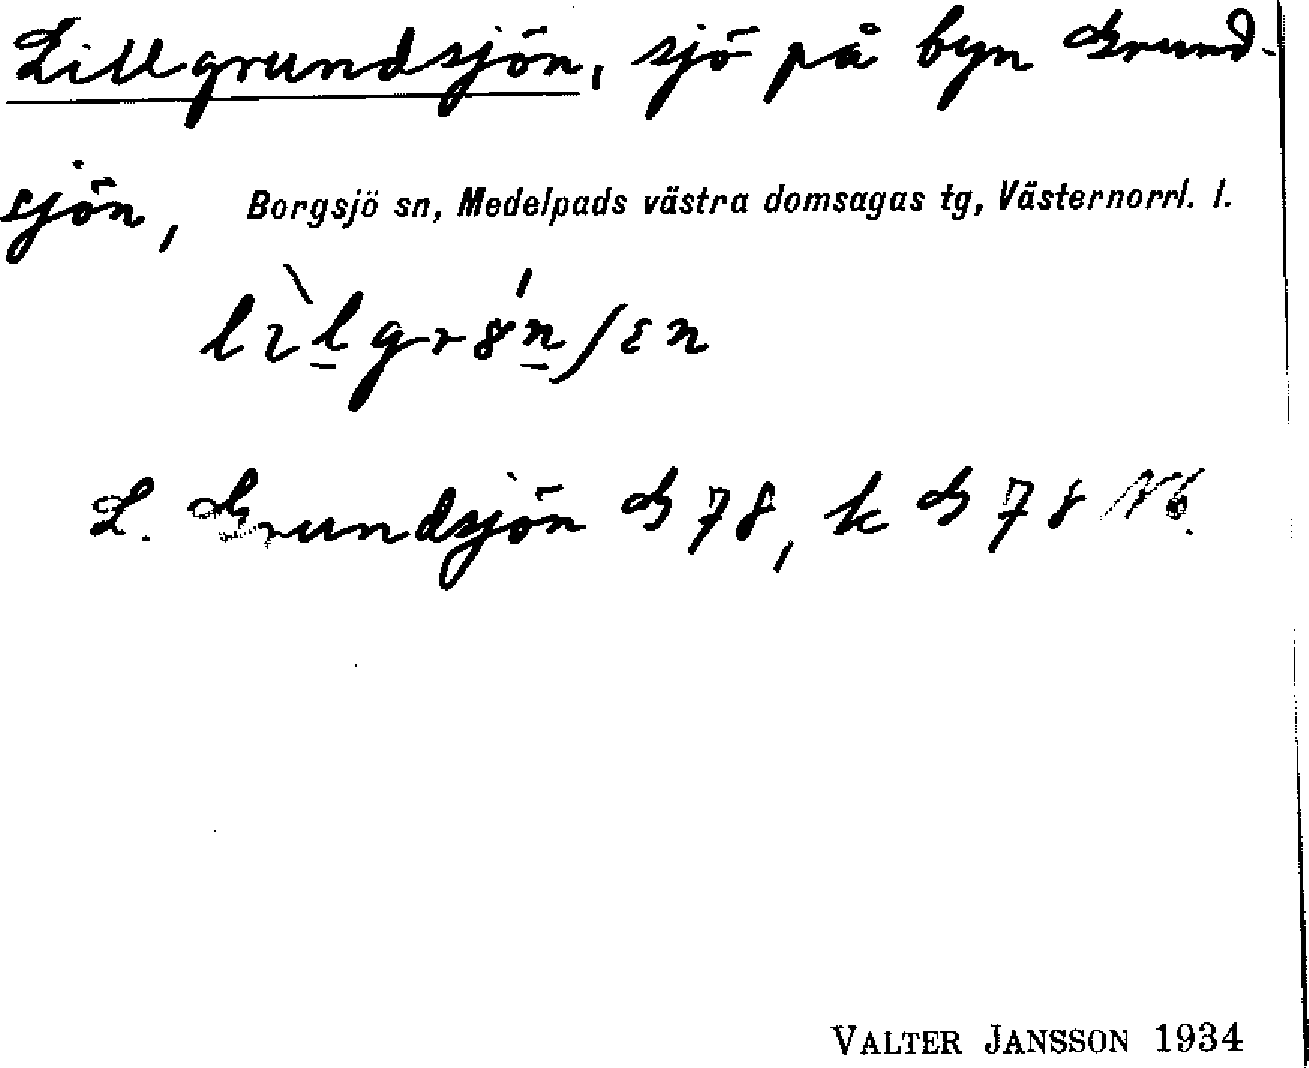 Lillgrundsjön, sjö på byn Grund-
sjön, Borgsjö sn, Medelpads västra domsagas tg, Västernorrl. l.
L. Grundsjön G 78, k G 78
VALTER JANSSON 1934